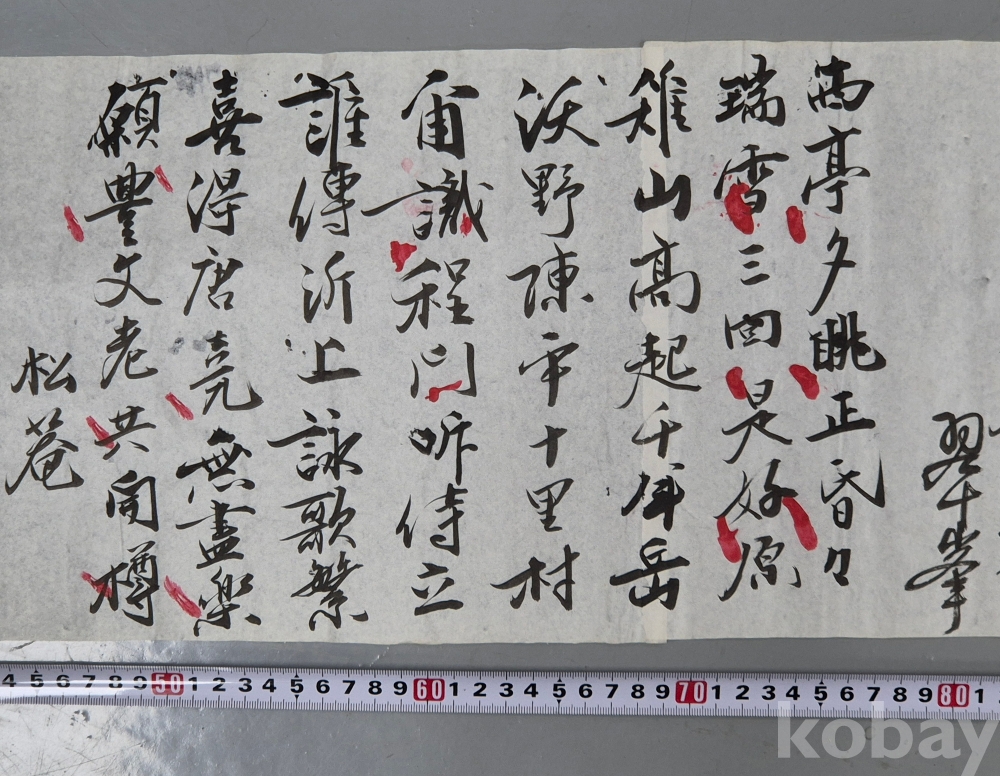 翠峯
亭夕眺正昏々
瑞雪三回是好原
雉山高起千年岳
沃野陳平十里村
識程門侍立
誰傳沂上詠歌繁
喜得唐堯無盡樂
願豐文老共開樽
松菴
4 5 6 7 8 9 50 1 2 3 4 5 6 7 8 9 60 1 2 3 4 5 6 7 8 9 70 1 2 3 4 5 6 7 8 9 80 1
kobay